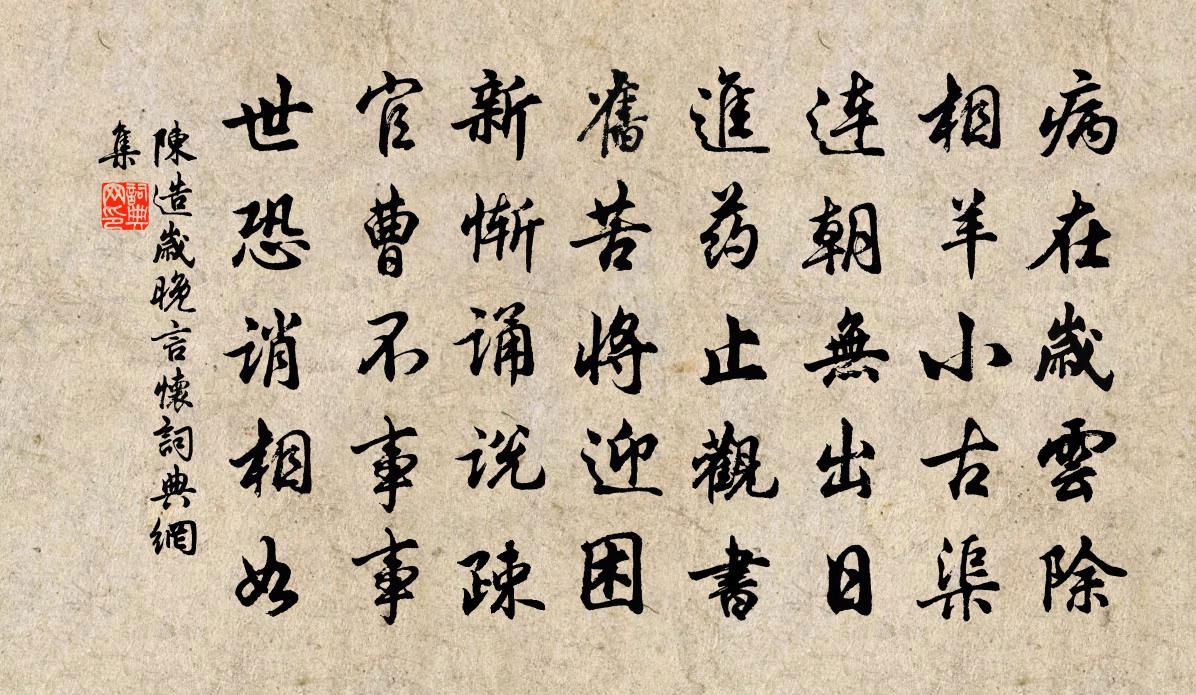 病在歲雲除
相羊小古渠
連朝無出日
進药止觀書
舊苦將迎困
新慚誦说疎
官曹不事事
世恐诮相如
陳造歲晚言懷詞典網
集
詞典
网印